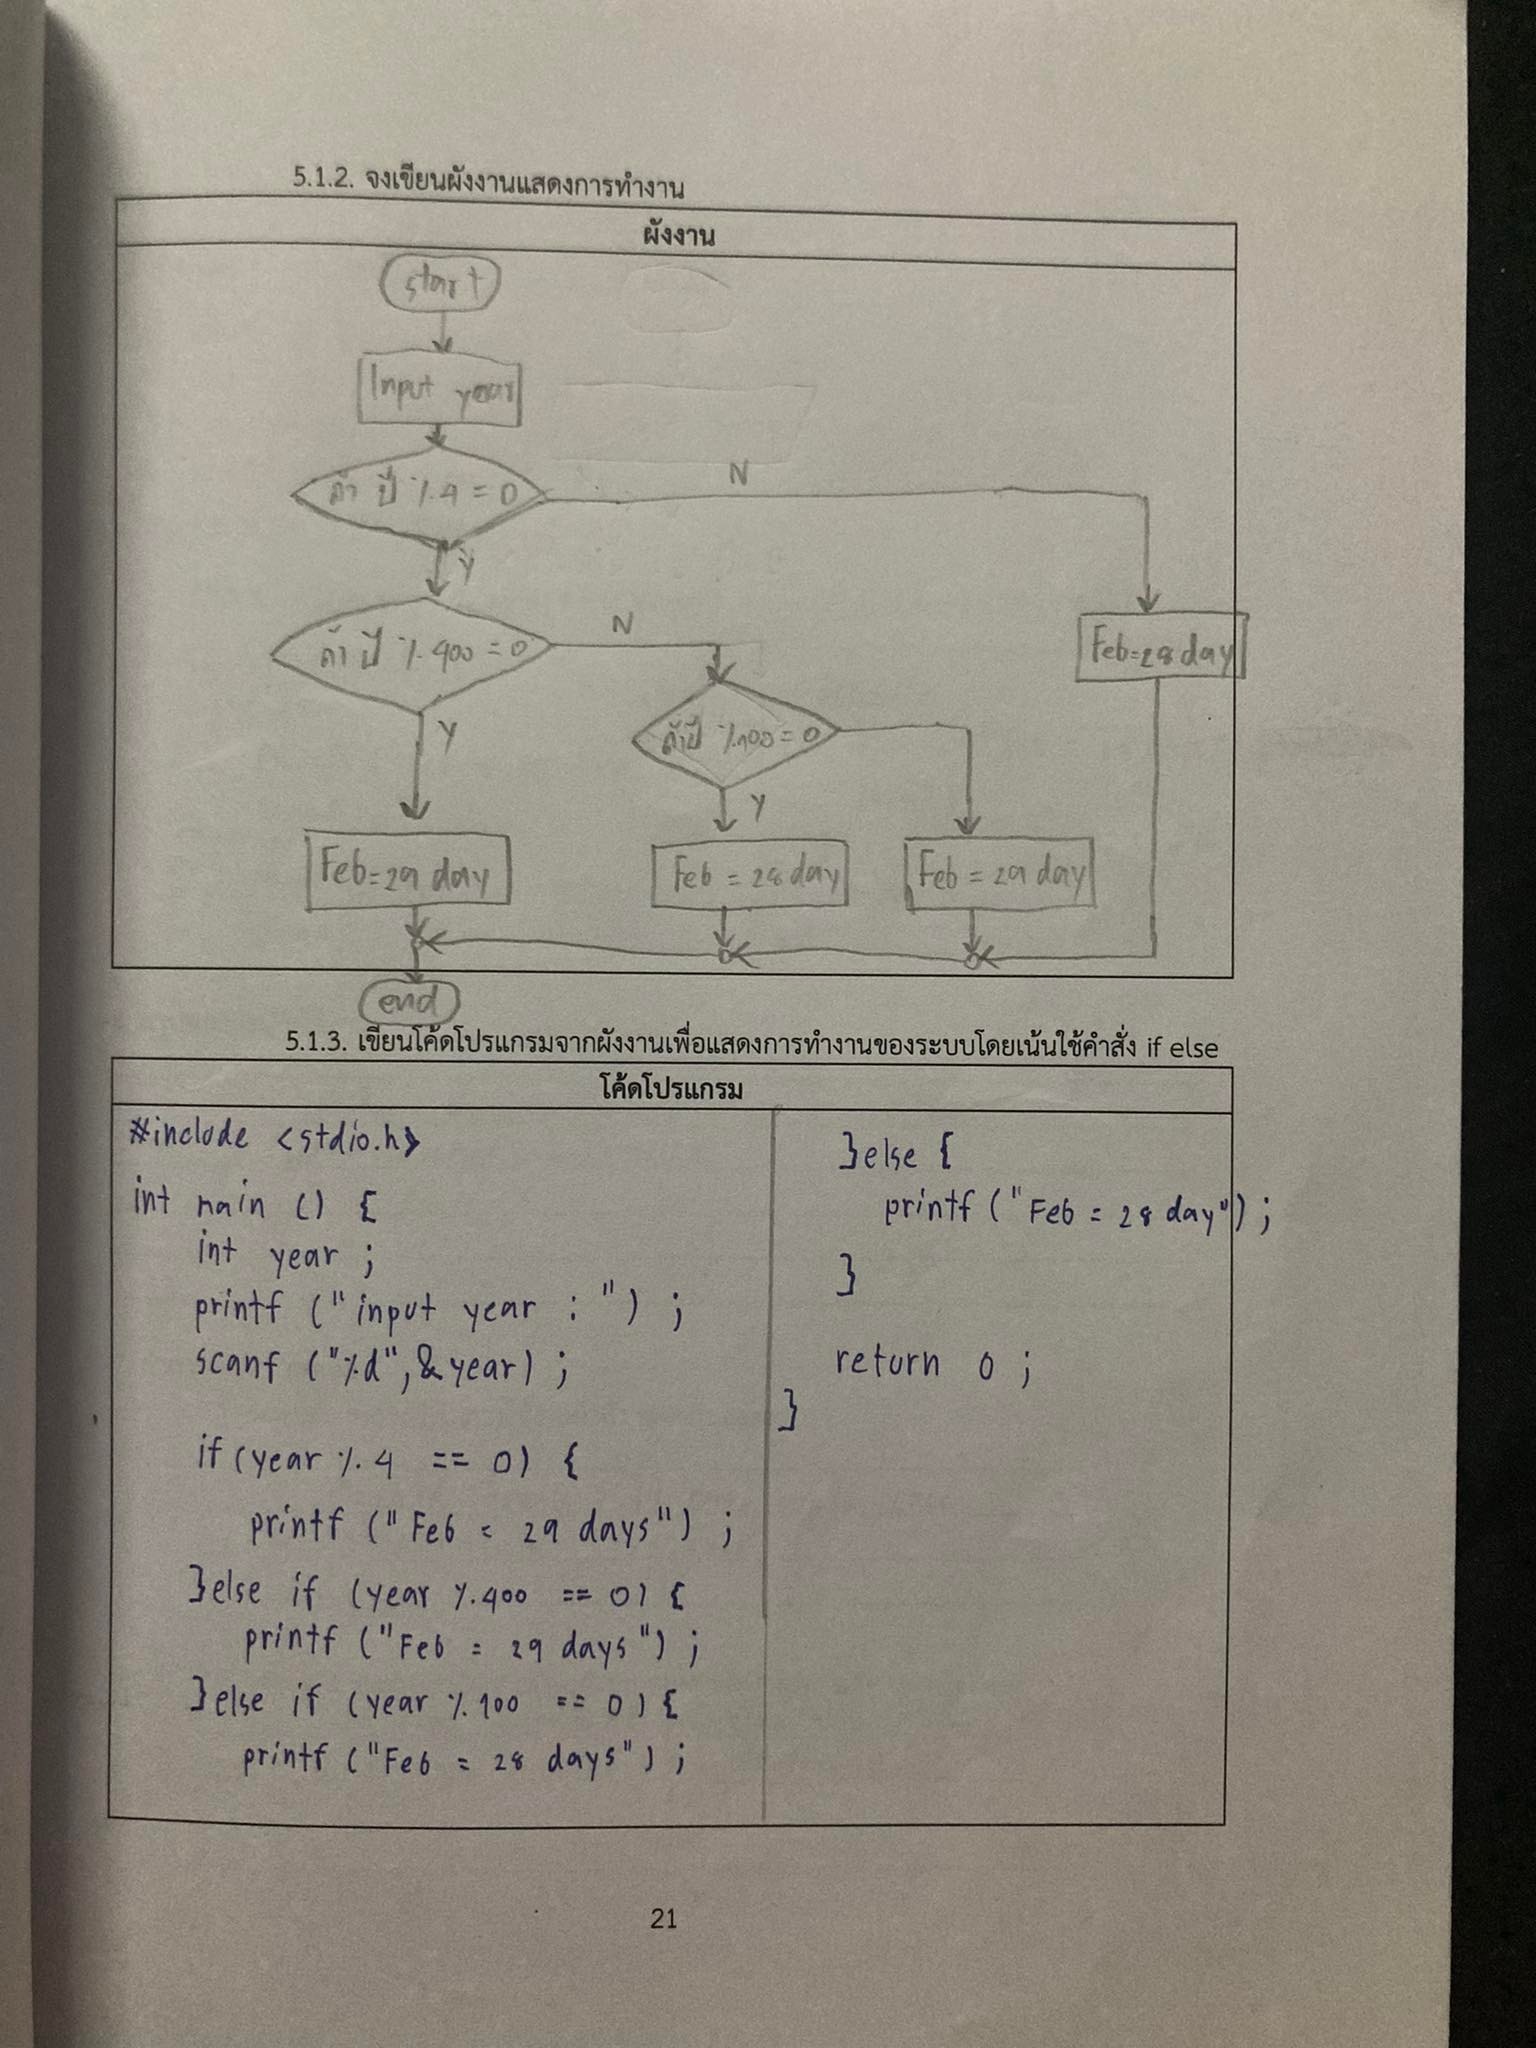 5.1.2. จงเขียนผังงานแสดงการทำงาน
ผังงาน
start
Input year
ถ้า ปี % 4 = 0
N
Y
ถ้า ปี % 400 = 0
N
Feb=28 day
Y
ถ้าปี % 100 = 0
Y
Feb=29 day
Feb = 28 day
Feb = 29 day
end
5.1.3. เขียนโค้ดโปรแกรมจากผังงานเพื่อแสดงการทำงานของระบบโดยเน้นใช้คำสั่ง if else
โค้ดโปรแกรม
#include <stdio.h>
int main () {
int year ;
printf ("input year : ") ;
scanf ("%d",&year) ;
if (year % 4 == 0) {
printf ("Feb = 29 days") ;
}else if (year % 400 == 0) {
printf ("Feb = 29 days") ;
}else if (year % 100 == 0) {
printf ("Feb = 28 days") ;
}else {
printf ("Feb = 28 day") ;
}
return 0 ;
}
21